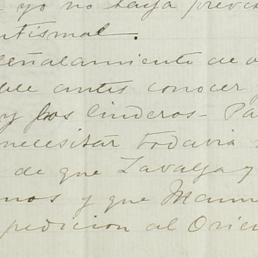 yo no haya previs
utismal.
eñalamiento de a
ble antes conocer
y los linderos - Pa
necesitar todavia
de que Lavalga y
nos y que Manu
pedicion al Orie